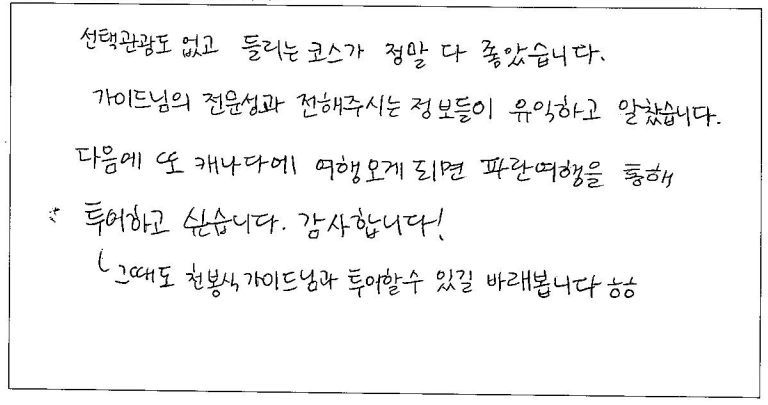 선택관광도 없고 들리는 코스가 정말 다 좋았습니다.
가이드님의 전문성과 전해주시는 정보들이 유익하고 알찼습니다.
다음에 또 캐나다에 여행오게 되면 파란여행을 통해
투어하고 싶습니다. 감사합니다!
그때도 천봉식가이드님과 투어할수 있길 바래봅니다 ㅎㅎ